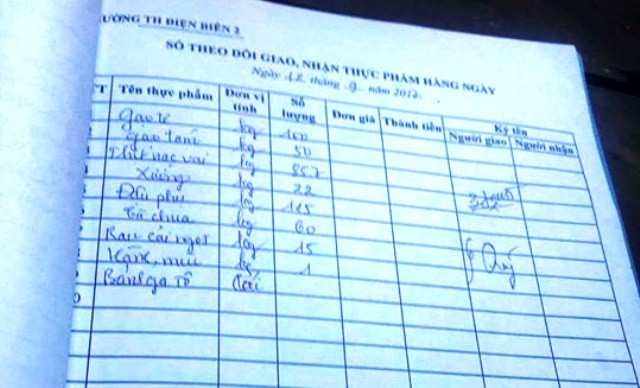 ƯỜNG TH ĐIỆN BIÊN 2
SỔ THEO DÕI GIAO, NHẬN THỰC PHẨM HÀNG NGÀY
Ngày 12 tháng 9 năm 2017
T Tên thực phẩm Đơn vị tính Số lượng Đơn giá Thành tiền Ký tên Người giao Người nhận
Gạo tẻ kg 100
gạo tám kg 50
Thịt nạc vai kg 85
Xương kg 22
Đậu phụ kg 115
Cà chua kg 60
Rau cải ngọt kg 15
Hành, mùi kg 1
Quý